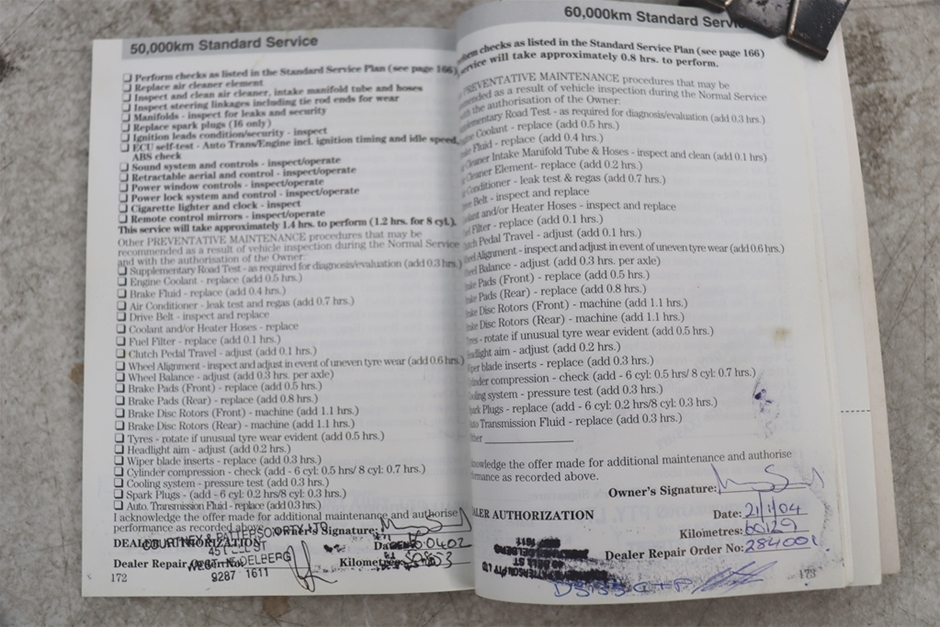 50,000km Standard Service
❏ Perform checks as listed in the Standard Service Plan (see page 166)
❏ Replace air cleaner element
❏ Inspect and clean air cleaner, intake manifold tube and hoses
❏ Inspect steering linkages including tie rod ends for wear
❏ Manifolds - inspect for leaks and security
❏ Replace spark plugs (16 only)
❏ Ignition leads condition/security - inspect
❏ ECU self-test - Auto Trans/Engine incl. ignition timing and idle speed,
ABS check
❏ Sound system and controls - inspect/operate
❏ Retractable aerial and control - inspect/operate
❏ Power window controls - inspect/operate
❏ Power lock system and control - inspect/operate
❏ Cigarette lighter and clock - inspect
❏ Remote control mirrors - inspect/operate
This service will take approximately 1.4 hrs. to perform (1.2 hrs. for 8 cyl.).
Other PREVENTATIVE MAINTENANCE procedures that may be
recommended as a result of vehicle inspection during the Normal Service
and with the authorisation of the Owner:
❏ Supplementary Road Test - as required for diagnosis/evaluation (add 0.3 hrs.)
❏ Engine Coolant - replace (add 0.5 hrs.)
❏ Brake Fluid - replace (add 0.4 hrs.)
❏ Air Conditioner - leak test and regas (add 0.7 hrs.)
❏ Drive Belt - inspect and replace
❏ Coolant and/or Heater Hoses - replace
❏ Fuel Filter - replace (add 0.1 hrs.)
❏ Clutch Pedal Travel - adjust (add 0.1 hrs.)
❏ Wheel Alignment - inspect and adjust in event of uneven tyre wear (add 0.6 hrs.)
❏ Wheel Balance - adjust (add 0.3 hrs. per axle)
❏ Brake Pads (Front) - replace (add 0.5 hrs.)
❏ Brake Pads (Rear) - replace (add 0.8 hrs.)
❏ Brake Disc Rotors (Front) - machine (add 1.1 hrs.)
❏ Brake Disc Rotors (Rear) - machine (add 1.1 hrs.)
❏ Tyres - rotate if unusual tyre wear evident (add 0.5 hrs.)
❏ Headlight aim - adjust (add 0.2 hrs.)
❏ Wiper blade inserts - replace (add 0.3 hrs.)
❏ Cylinder compression - check (add - 6 cyl: 0.5 hrs/ 8 cyl: 0.7 hrs.)
❏ Cooling system - pressure test (add 0.3 hrs.)
❏ Spark Plugs - (add - 6 cyl: 0.2 hrs/8 cyl: 0.3 hrs.)
❏ Auto. Transmission Fluid - replace (add 0.3 hrs.)
I acknowledge the offer made for additional maintenance and authorise
performance as recorded above. Owner's Signature:
COURTNEY & PATTERSON PTY LTD
DEALER AUTHORIZATION
Dealer Repair Kilometres:
9287 1611
172
60,000km Standard
checks as listed in the Standard Service Plan (see page 166)
service will take approximately 0.8 hrs. to perform.
PREVENTATIVE MAINTENANCE procedures that may be
as a result of vehicle inspection during the Normal Service
the authorisation of the Owner:
Road Test - as required for diagnosis/evaluation (add 0.3 hrs.)
Coolant - replace (add 0.5 hrs.)
Fluid - replace (add 0.4 hrs.)
Cleaner Intake Manifold Tube & Hoses - inspect and clean (add 0.1 hrs)
Cleaner Element- replace (add 0.2 hrs.)
Conditioner - leak test & regas (add 0.7 hrs.)
Belt - inspect and replace
and/or Heater Hoses - inspect and replace
Filter - replace (add 0.1 hrs.)
Pedal Travel - adjust (add 0.1 hrs.)
Alignment - inspect and adjust in event of uneven tyre wear (add 0.6 hrs.)
Balance - adjust (add 0.3 hrs. per axle)
Pads (Front) - replace (add 0.5 hrs.)
Pads (Rear) - replace (add 0.8 hrs.)
Disc Rotors (Front) - machine (add 1.1 hrs.)
Disc Rotors (Rear) - machine (add 1.1 hrs.)
- rotate if unusual tyre wear evident (add 0.5 hrs.)
aim - adjust (add 0.2 hrs.)
blade inserts - replace (add 0.3 hrs.)
compression - check (add - 6 cyl: 0.5 hrs/ 8 cyl: 0.7 hrs.)
system - pressure test (add 0.3 hrs.)
Plugs - replace (add - 6 cyl: 0.2 hrs/8 cyl: 0.3 hrs.)
Transmission Fluid - replace (add 0.3 hrs.)
the offer made for additional maintenance and authorise
as recorded above.
Owner's Signature:
AUTHORIZATION Date: 21/1/04
Kilometres: 60129
Dealer Repair Order No: 284001
173